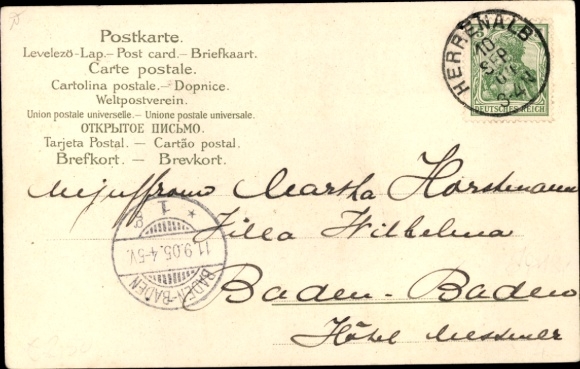 Postkarte.
Levelező-Lap. – Post card. – Briefkaart.
Carte postale.
Cartolina postale. – Dopnice.
Weltpostverein.
Union postale universelle. – Unione postale universale.
ОТКРЫТОЕ ПИСЬМО.
Tarjeta Postal. – Cartão postal.
Brefkort. – Brevkort.
HERRENALB
10
SEP
DEUTSCHES REICH
Mejuffrouw Martha Horstmann
Villa Wilhelma
Baden-Baden
Hôtel Messmer
* 1 *
11.9.05.4-5V.
BADEN-BADEN